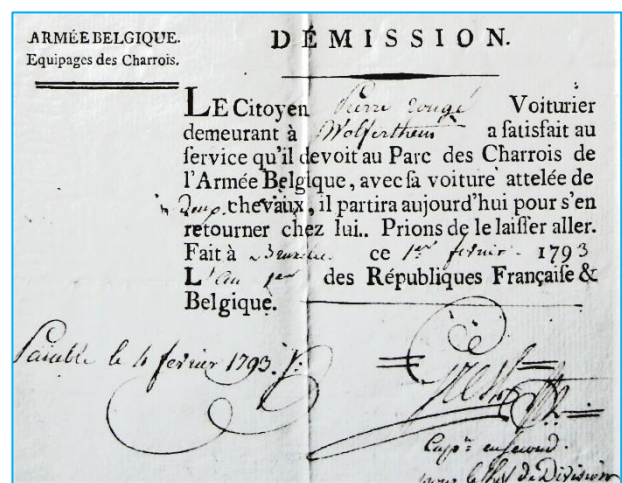 ARMÉE BELGIQUE.
Equipages des Charrois.
DÉMISSION.
LE Citoyen Pierre rougé Voiturier
demeurant à Wolferthem a ſatisfait au
ſervice qu'il devoit au Parc des Charrois de
l'Armée Belgique, avec ſa voiture attelée de
Deux chevaux, il partira aujourd'hui pour s'en
retourner chez lui.. Prions de le laiſſer aller.
Fait à Bruxelle. ce 1er fevrier. 1793
L'an 1er des Républiques Françaiſe &
Belgique.
le 4 fevrier 1793.
Capne en second.
pour le Chef de Division